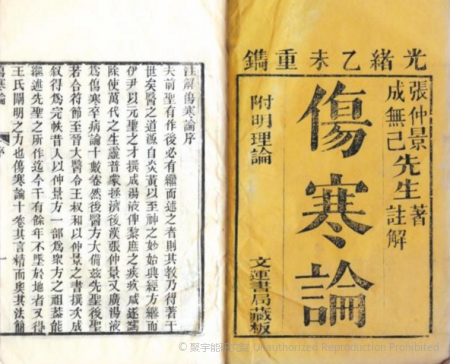 光緒乙未重鐫
張仲景先生著
成無己註解
傷寒論
附明理論
文運書局藏板
註解傷寒論序
夫前聖有作後必有繼而述之者則其教乃得著于
世矣醫之道源自炎黃以至神之妙始興經方繼而
伊尹以元聖之才撰成湯液俾黎庶之疾疢咸遂蠲
除使萬代之生靈普蒙拯濟後漢張仲景又廣湯液
為傷寒卒病論十數卷然後醫方大備茲先聖後聖
若合符節至晉太醫令王叔和以仲景之書撰次成
敘得為完帙昔人以仲景方一部為眾方之祖蓋能
繼述先聖之所作迄今千有餘年不墜於地者又得
王氏闡明之力也傷寒論十卷其言精而奧其法簡
傷寒論
序
一
© 聚宇能研究院 Unauthorized Reproduction Prohibited